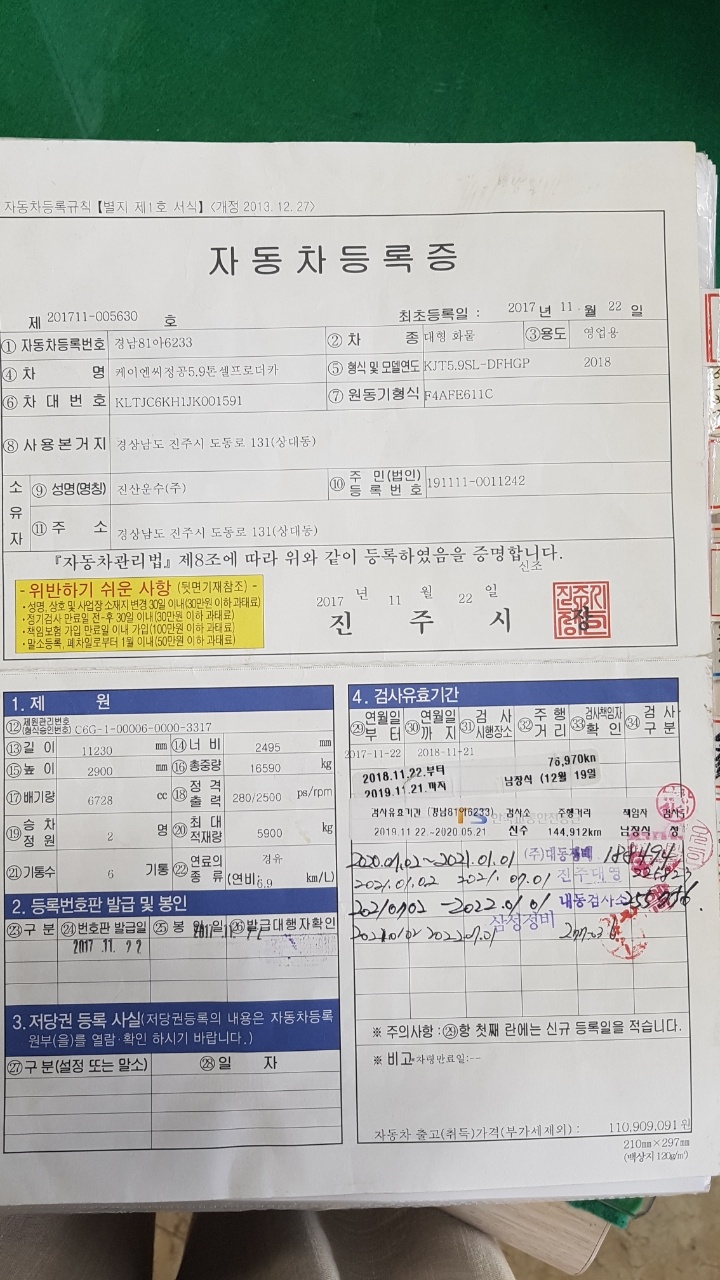 자동차등록규칙【별지 제1호 서식】<개정 2013.12.27>
자동차등록증
제 201711-005630 호
최초등록일 : 2017년 11월 22일
① 자동차등록번호 경남81아6233 ② 차 종 대형 화물 ③용도 영업용
④ 차 명 케이엔씨정공5.9톤셀프로더카 ⑤ 형식 및 모델연도 KJT5.9SL-DFHGP 2018
⑥ 차 대 번 호 KLTJC6KH1JK001591 ⑦ 원동기형식 F4AFE611C
⑧ 사용본거지 경상남도 진주시 도동로 131(상대동)
소유자
⑨ 성명(명칭) 진산운수(주) ⑩ 주 민(법인)등 록 번 호 191111-0011242
⑪ 주 소 경상남도 진주시 도동로 131(상대동)
『자동차관리법』제8조에 따라 위와 같이 등록하였음을 증명합니다.
신조
- 위반하기 쉬운 사항 (뒷면기재참조) -
• 성명, 상호 및 사업장 소재지 변경 30일 이내(30만원 이하 과태료)
• 정기검사 만료일 전·후 30일 이내(30만원 이하 과태료)
• 책임보험 가입 만료일 이내 가입(100만원 이하 과태료)
• 말소등록, 폐차일로부터 1월 이내(50만원 이하 과태료)
2017 년 11 월 22 일
진 주 시 장
1. 제 원
⑫ 제원관리번호(형식승인번호) C6G-1-00006-0000-3317
⑬ 길 이 11230 mm ⑭ 너 비 2495 mm
⑮ 높 이 2900 mm ⑯ 총중량 16590 kg
⑰ 배기량 6728 cc ⑱ 정 격 출 력 280/2500 ps/rpm
⑲ 승 차 정 원 2 명 ⑳ 최 대 적재량 5900 kg
㉑ 기통수 6 기통 ㉒ 연료의 종 류 경유 (연비: 6.9 km/L)
2. 등록번호판 발급 및 봉인
㉓ 구 분 ㉔ 번호판 발급일 ㉕ 봉 인 일 ㉖ 발급대행자확인
2017.11.22 2017.11.22
3. 저당권 등록 사실(저당권등록의 내용은 자동차등록
원부(을)를 열람·확인 하시기 바랍니다.)
㉗ 구 분(설정 또는 말소) ㉘ 일 자
4. 검사유효기간
㉙ 연월일 부 터 ㉚ 연월일 까 지 ㉛ 검 사 시행장소 ㉜ 주 행 거 리 ㉝ 검사책임자 확 인 ㉞ 검 사 구 분
2017-11-22 2018-11-21
2018.11.22.부터 76,970km
2019.11.21.까지 남장식 (12월 19일
검사유효기간 (경남81아6233) 검사소 주행거리 책임자 검사
2019.11.22.~2020.05.21 신수 144,912km 남장식
2020.07.02~2021.01.01 (주)대동정비
2021.01.02 2021.07.01 진주대명 225823
2021.07.02 - 2022.01.01 내동검사소
2022.01.02 2022.07.01 삼성정비
※ 주의사항 : ㉙항 첫째 란에는 신규 등록일을 적습니다.
※ 비고 차령만료일:--
자동차 출고(취득)가격(부가세제외) : 110,909,091 원
210mm×297mm
(백상지 120g/㎡)